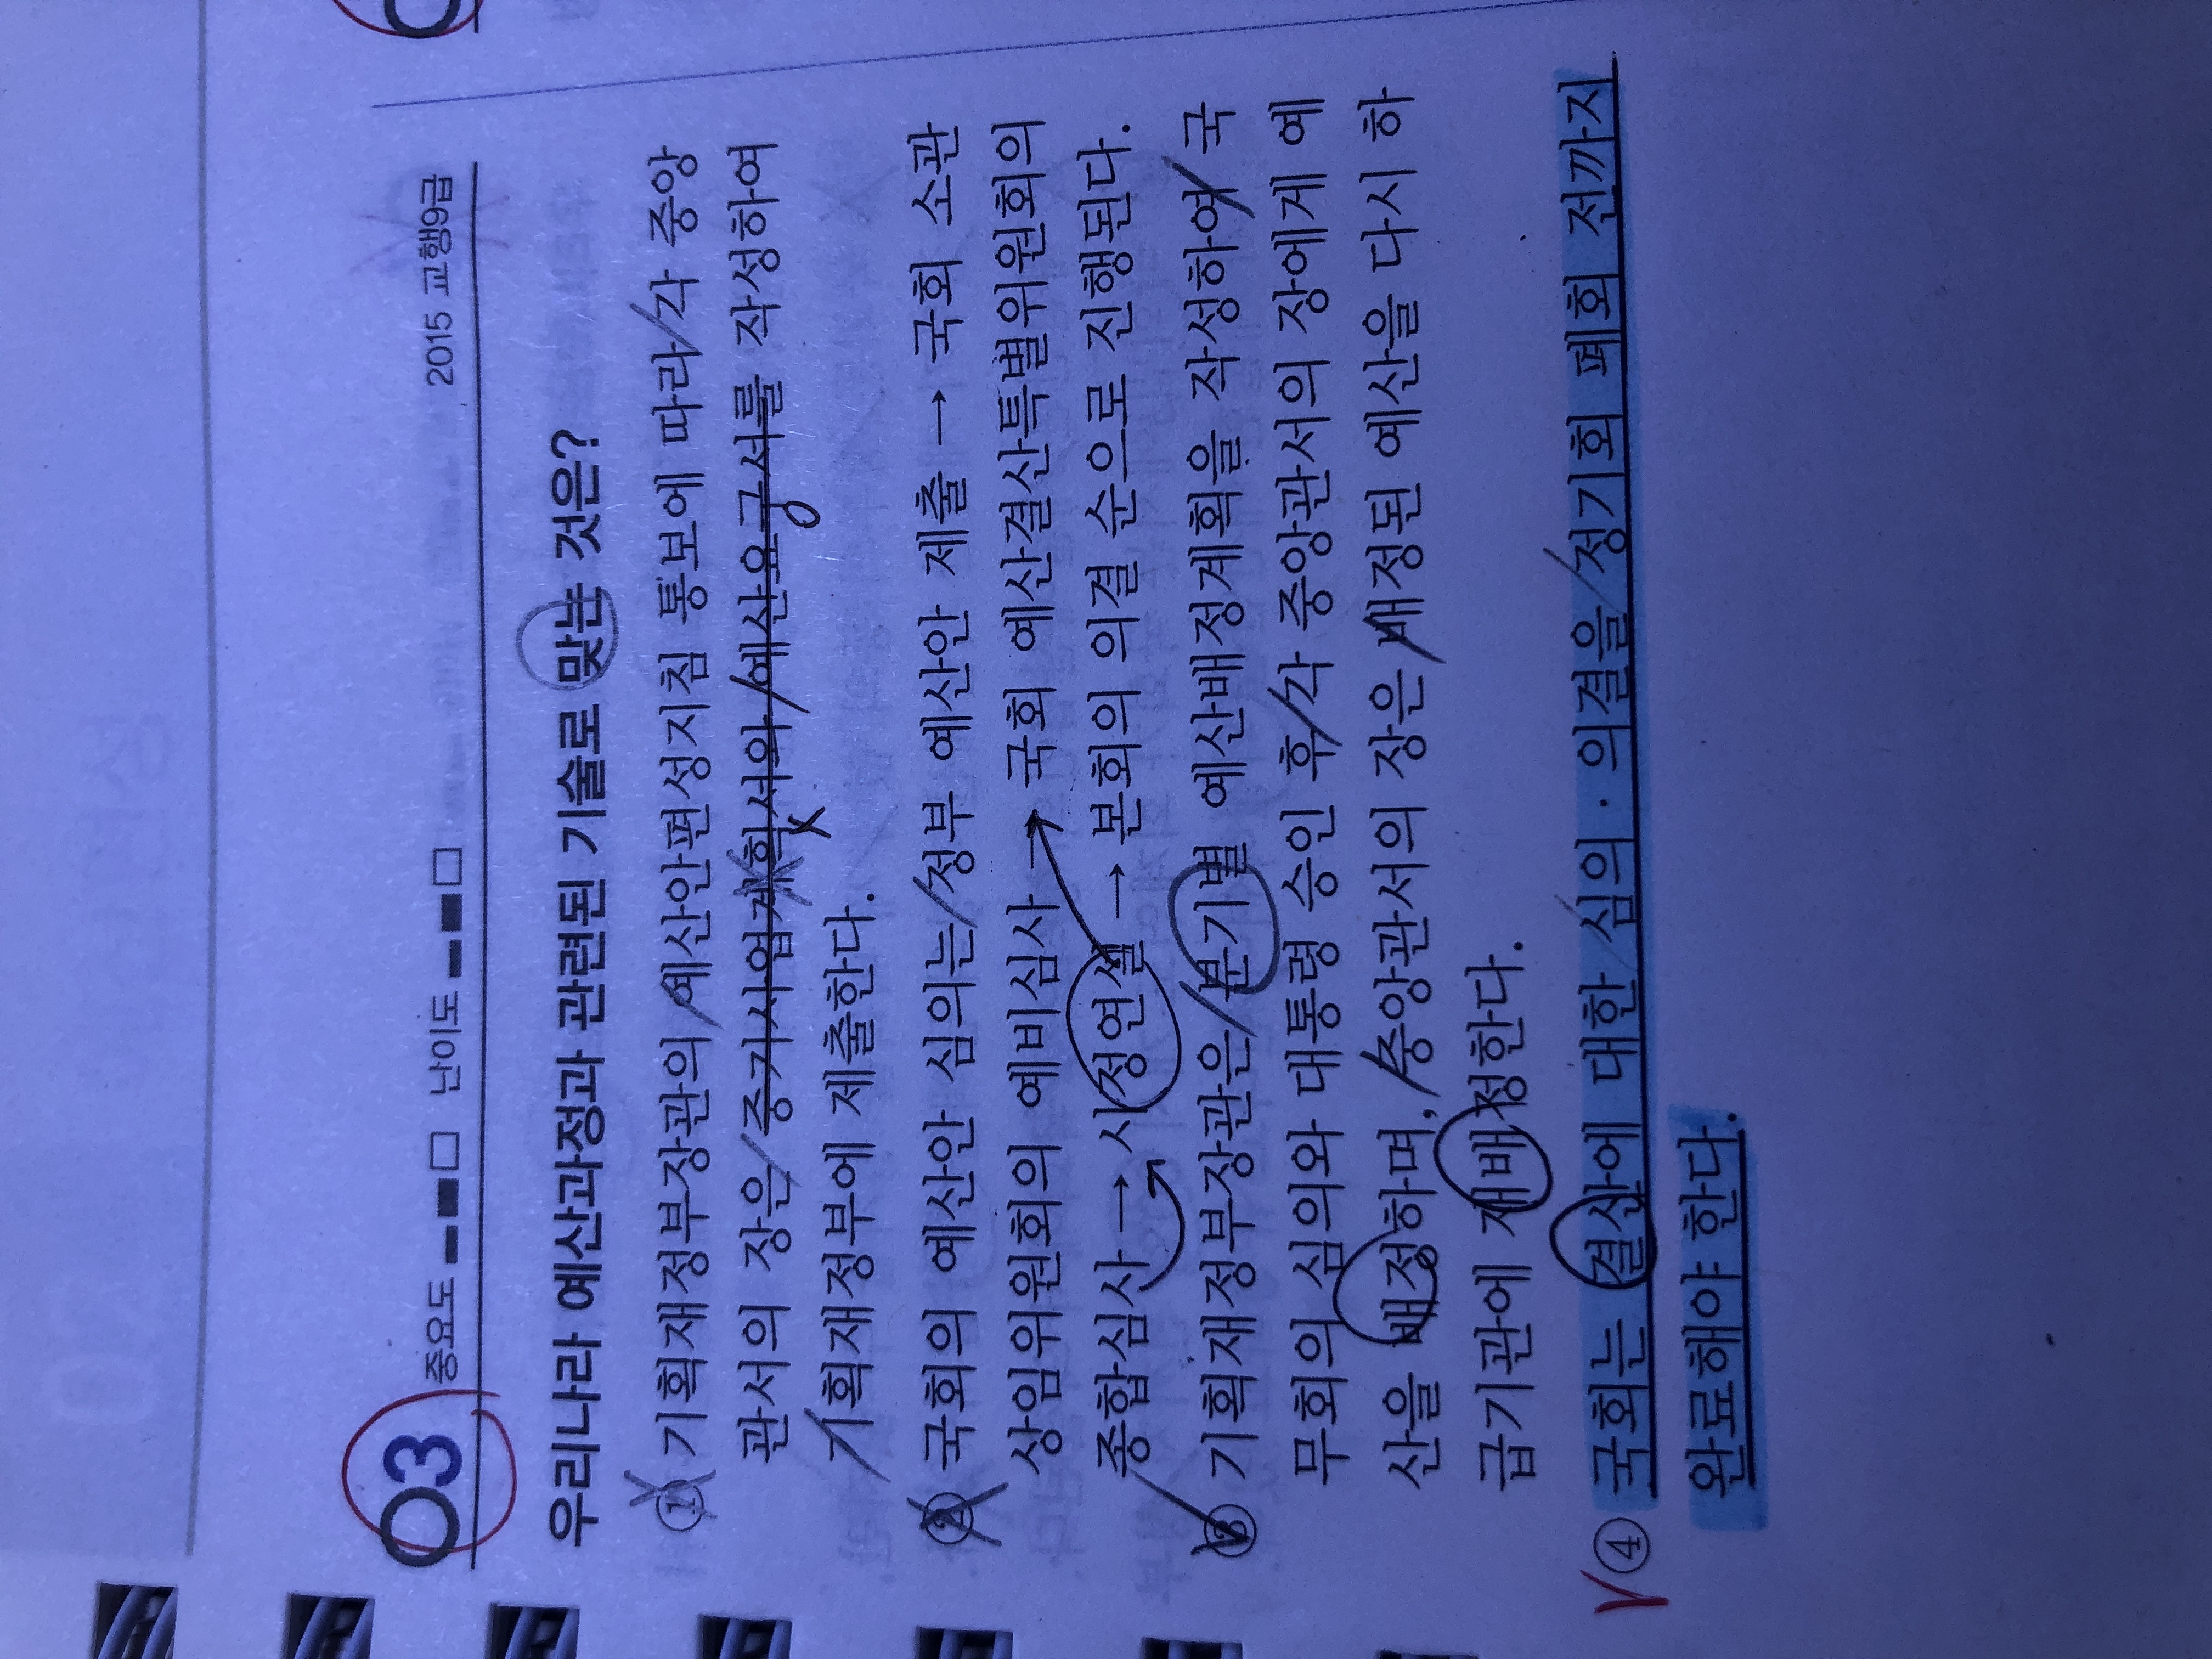 03 중요도 난이도 2015 교행9급
우리나라 예산과정과 관련된 기술로 맞는 것은?
① 기획재정부장관의 예산안편성지침 통보에 따라 각 중앙
관서의 장은 중기사업계획서와 예산요구서를 작성하여
기획재정부에 제출한다.
② 국회의 예산안 심의는 정부 예산안 제출 → 국회 소관
상임위원회의 예비심사 → 국회 예산결산특별위원회의
종합심사 → 시정연설 → 본회의 의결 순으로 진행된다.
③ 기획재정부장관은 분기별 예산배정계획을 작성하여 국
무회의 심의와 대통령 승인 후 각 중앙관서의 장에게 예
산을 배정하며, 중앙관서의 장은 배정된 예산을 다시 하
급기관에 재배정한다.
④ 국회는 결산에 대한 심의·의결을 정기회 폐회 전까지
완료해야 한다.